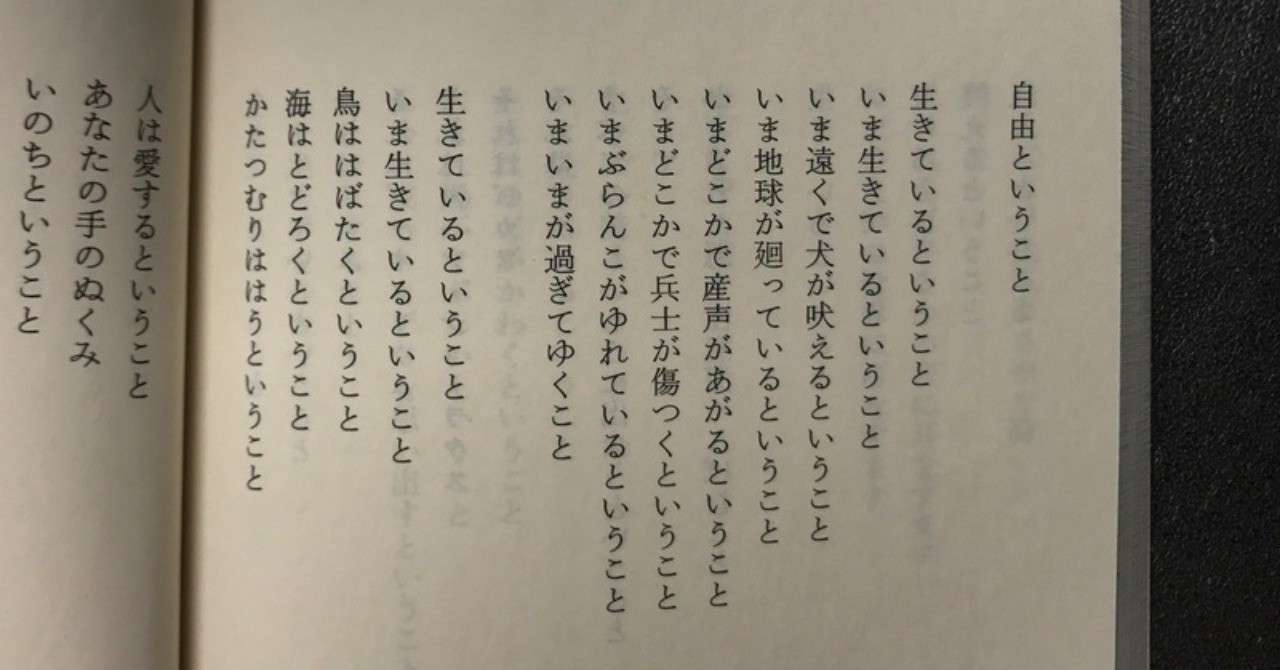 自由ということ
生きているということ
いま生きているということ
いま遠くで犬が吠えるということ
いま地球が廻っているということ
いまどこかで産声があがるということ
いまどこかで兵士が傷つくということ
いまぶらんこがゆれているということ
いまいまが過ぎてゆくこと
生きているということ
いま生きているということ
鳥ははばたくということ
海はとどろくということ
かたつむりははうということ
人は愛するということ
あなたの手のぬくみ
いのちということ